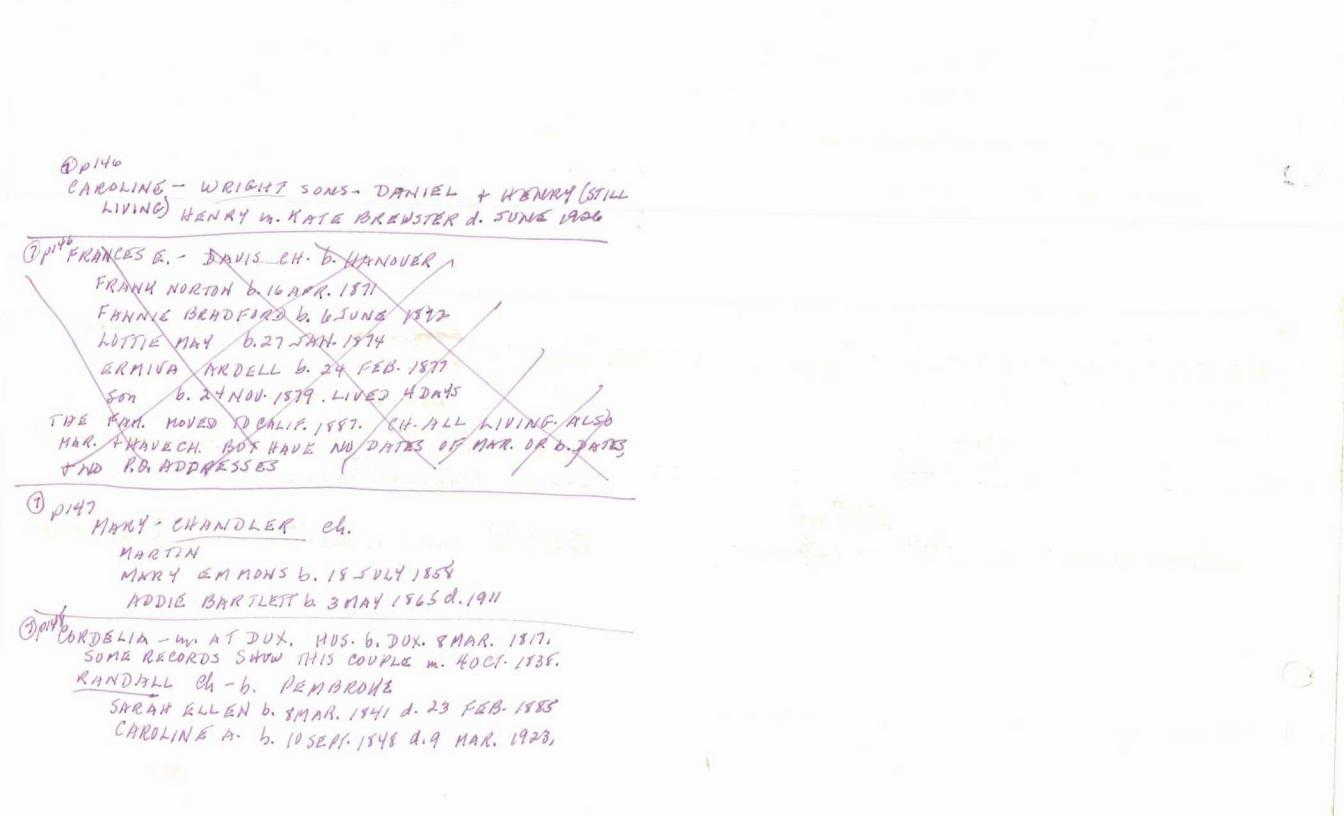 ② p146
CAROLINE - WRIGHT SONS - DANIEL + HENRY (STILL
LIVING) HENRY m. KATE BREWSTER d. JUNE 1926
⑦ p146 FRANCES E. - DAVIS CH. b. HANOVER
FRANK NORTON b. 16 APR. 1871
FANNIE BRADFORD b. 6 JUNE 1872
LOTTIE MAY b. 27 JAN. 1874
ERMINA ARDELL b. 24 FEB. 1877
SON b. 24 NOV. 1879. LIVED 4 DAYS
THE FAM. MOVED TO CALIF. 1887. CH. ALL LIVING. ALSO
MAR. + HAVE CH. BUT HAVE NO DATES OF MAR. OR b. DATES,
+ NO P.O. ADDRESSES
⑦ p147
MARY - CHANDLER ch.
MARTIN
MARY EMMONS b. 18 JULY 1858
ADDIE BARTLETT b. 3 MAY 1865 d. 1911
⑦ p148 CORDELIA - m. AT DUX. HUS. b. DUX. 8 MAR. 1817.
SOME RECORDS SHOW THIS COUPLE m. 4 OCT. 1838.
RANDALL ch - b. PEMBROKE
SARAH ELLEN b. 8 MAR. 1841 d. 23 FEB. 1885
CAROLINE A. b. 10 SEPT. 1848 d. 9 MAR. 1923.